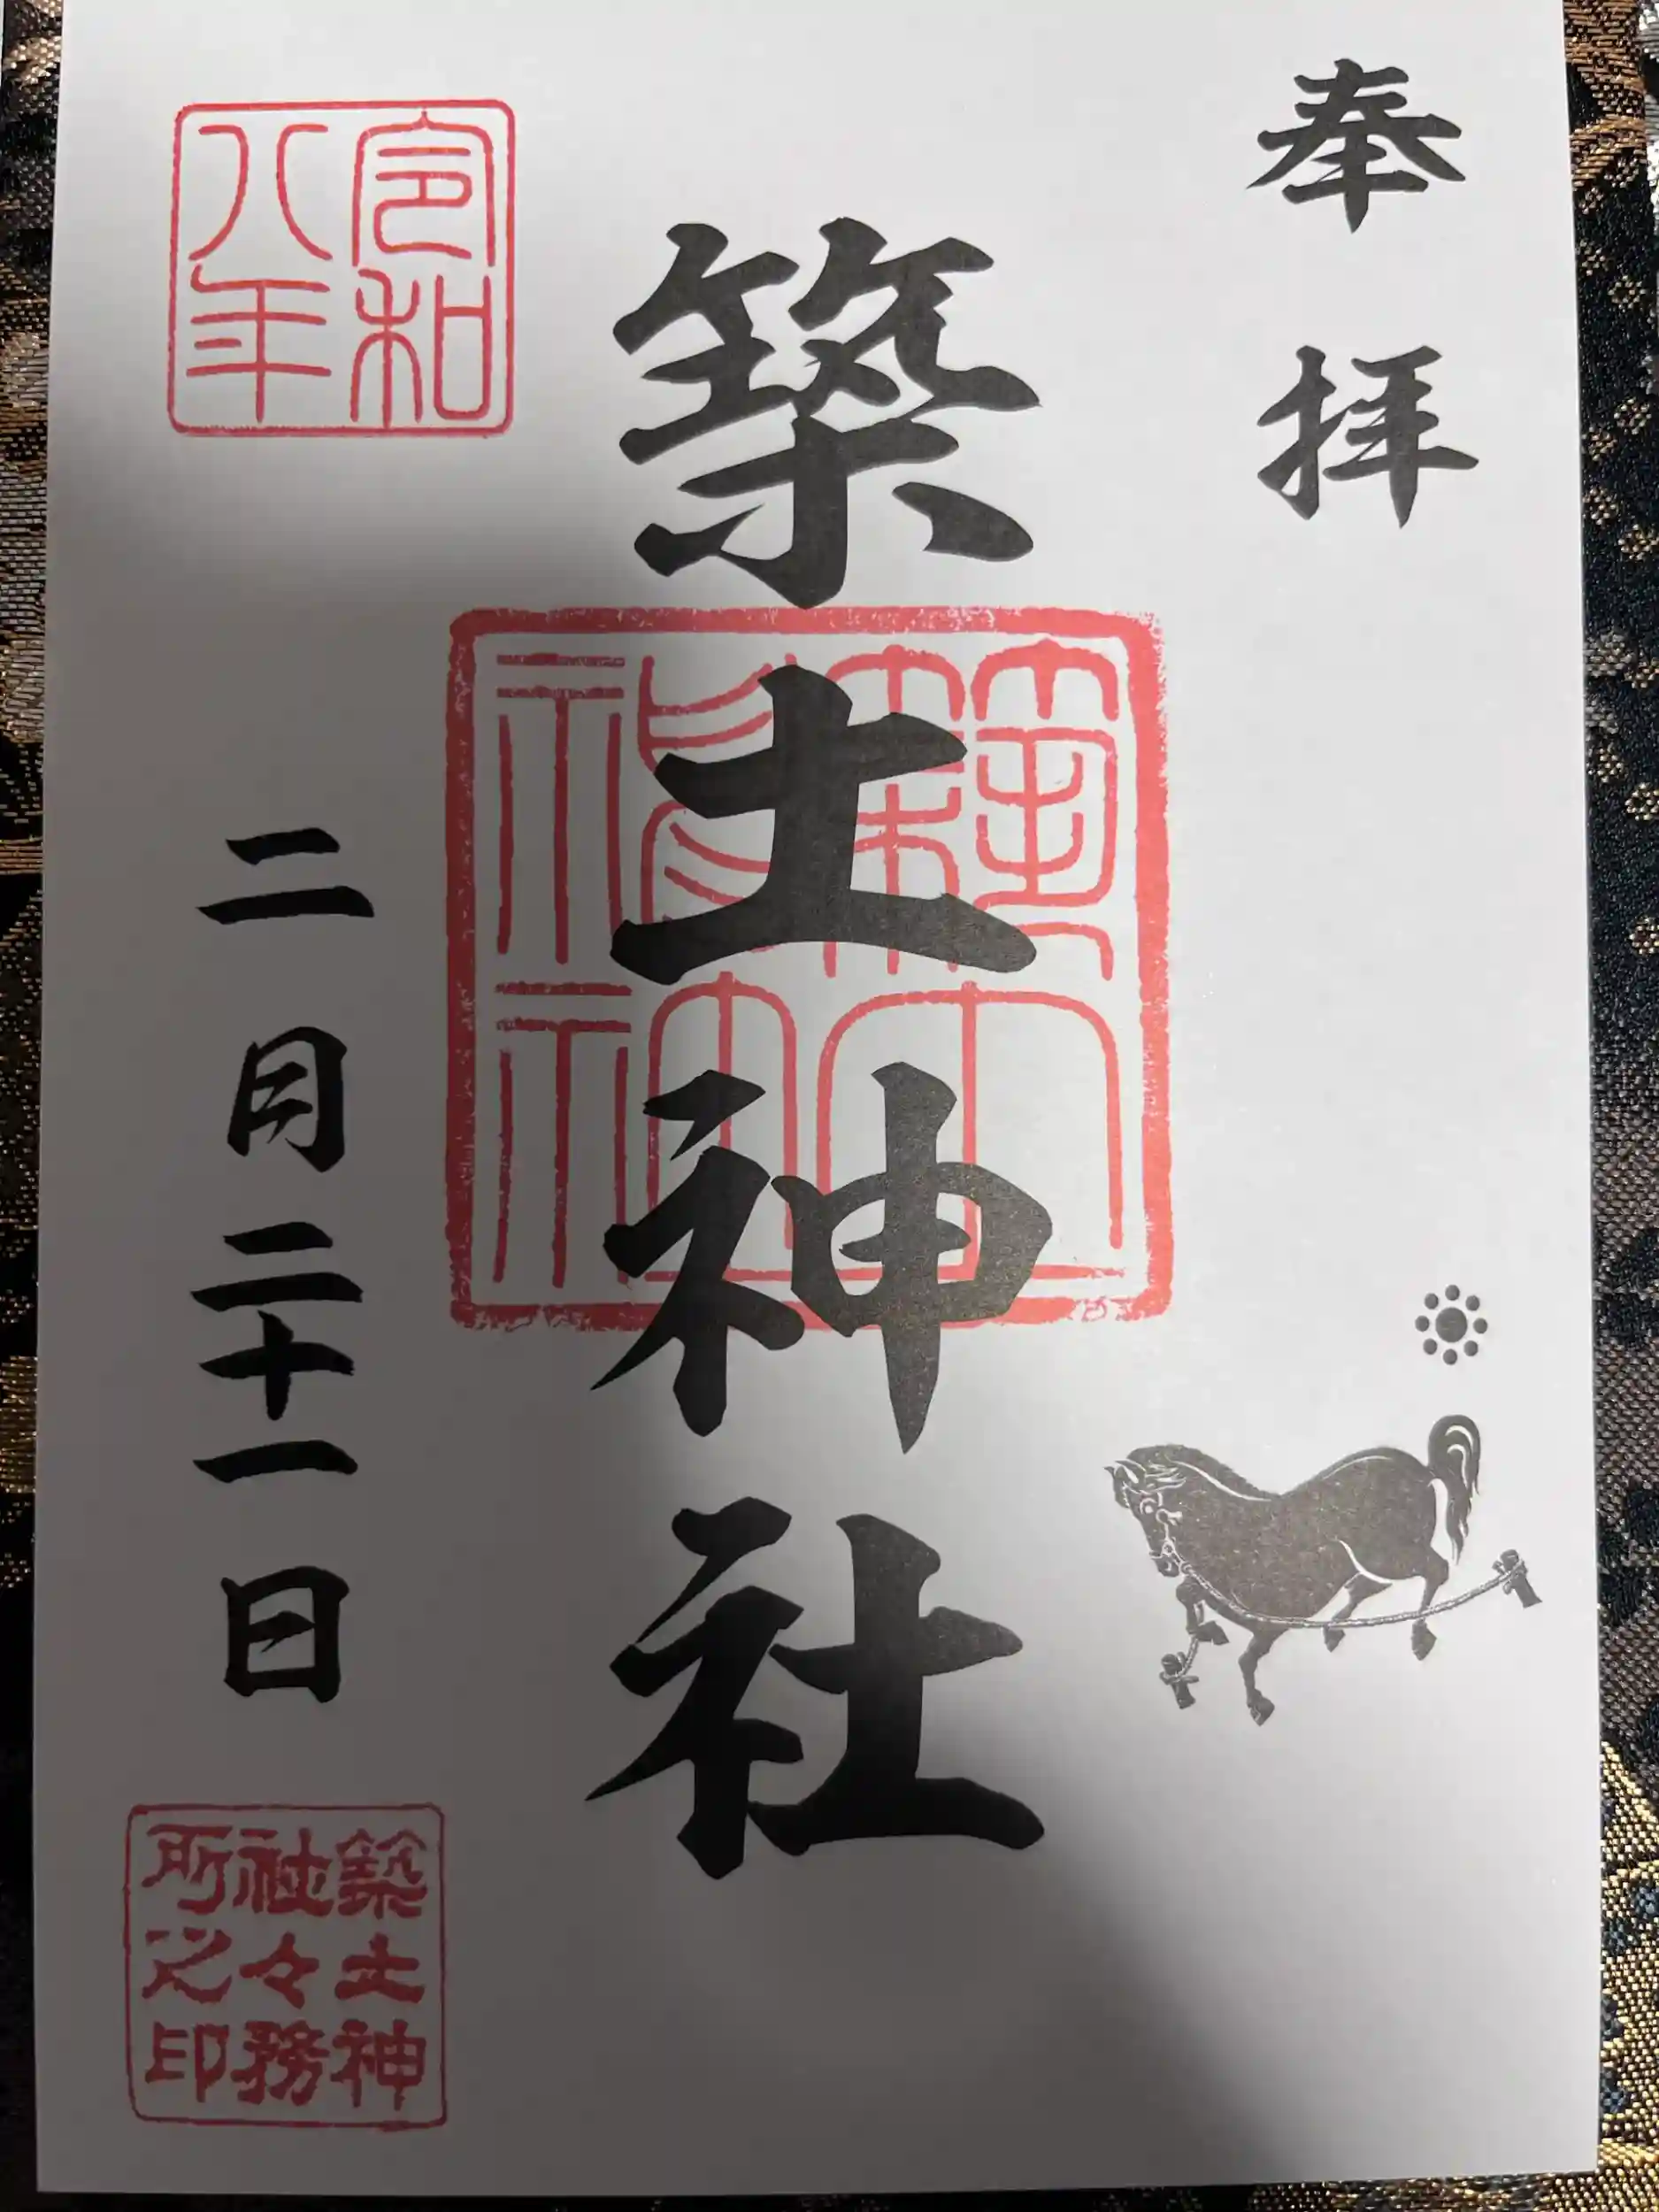 奉拝
築土神社
令和
八年
二月二十一日
築土神
社々務
所之印
築土
神社